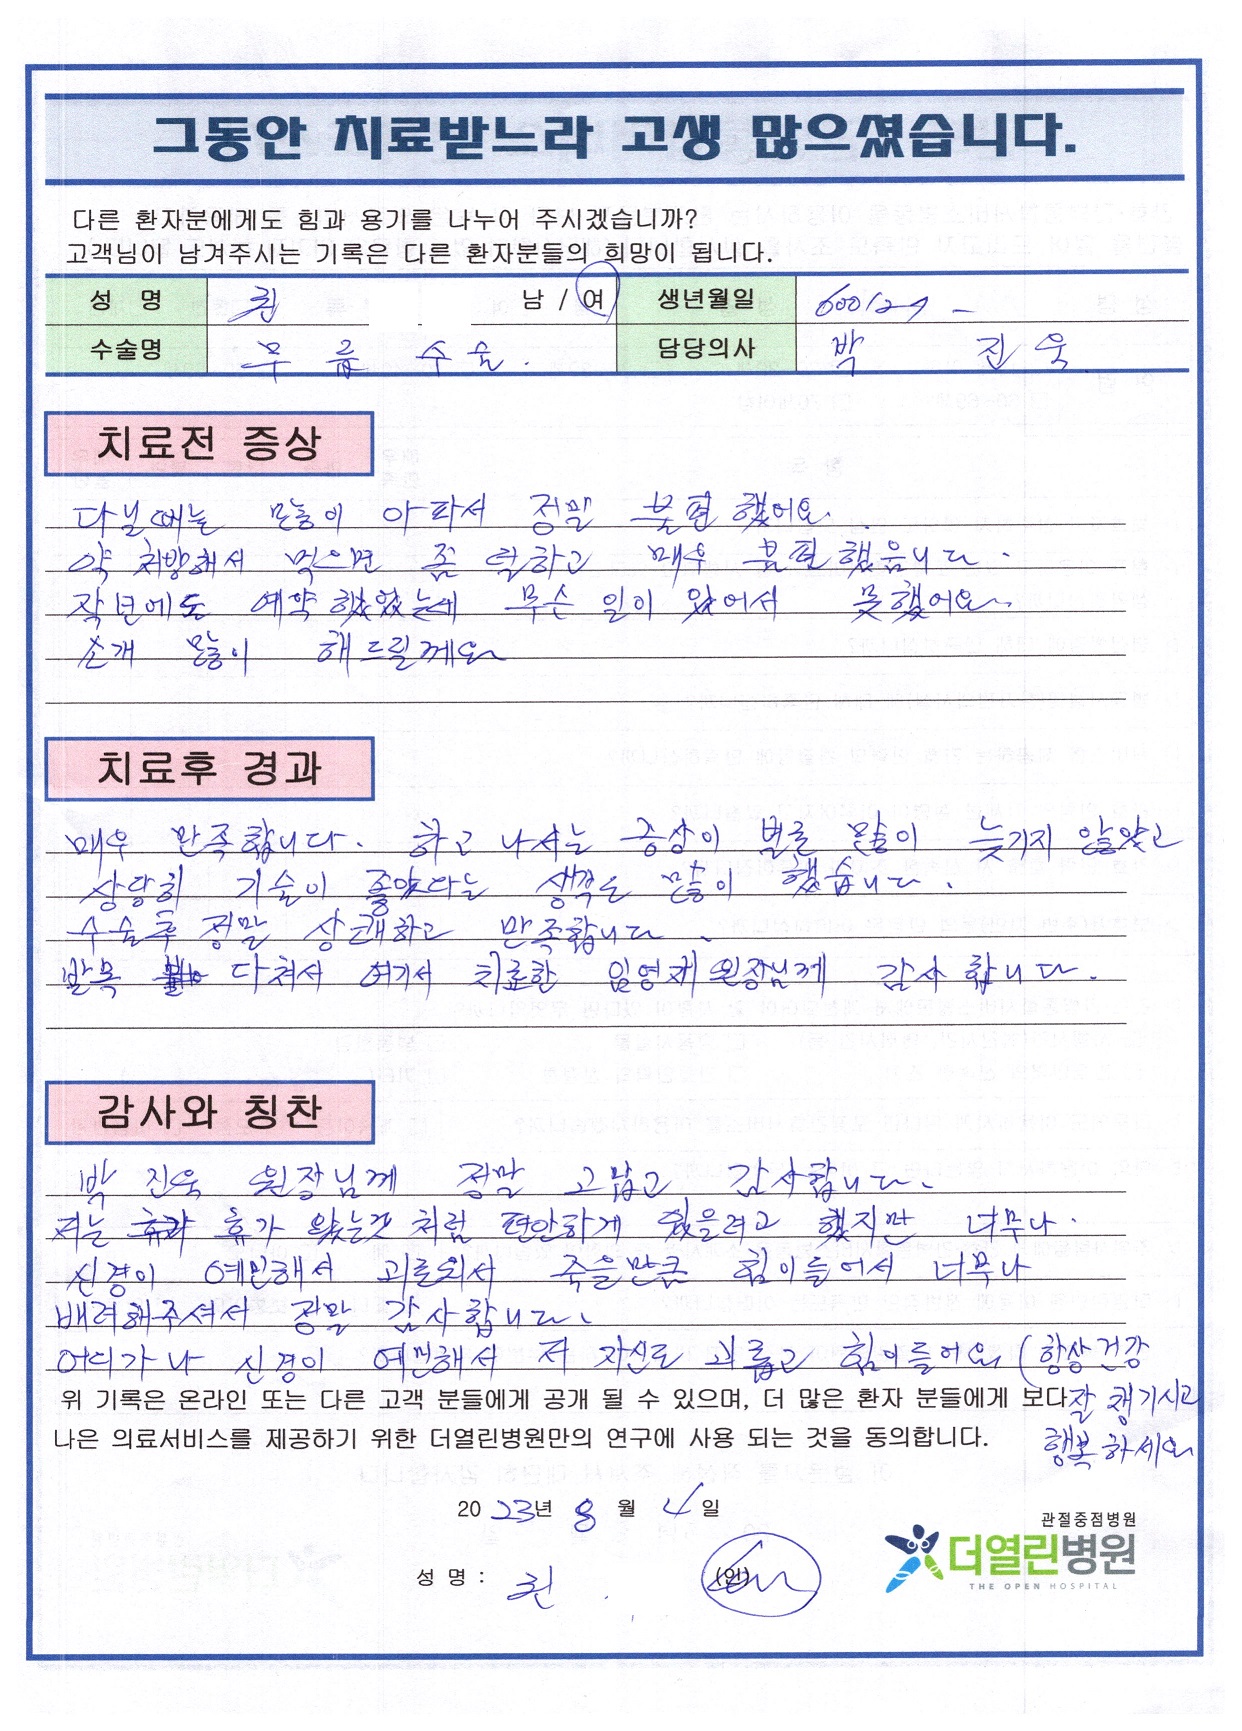 그동안 치료받느라 고생 많으셨습니다.
다른 환자분에게도 힘과 용기를 나누어 주시겠습니까?
고객님이 남겨주시는 기록은 다른 환자분들의 희망이 됩니다.
성 명 권 남 / 여 생년월일 600127 -
수술명 무릎 수술. 담당의사 박 진욱
치료전 증상
다닐때는 많이 아파서 정말 불편했어요.
약 처방해서 먹으면 좀 덜하고 매우 불편했읍니다.
작년에도 예약했었는데 무슨 일이 있어서 못했어요
소개 많이 해드릴께요
치료후 경과
매우 만족합니다. 하고 나서는 증상이 별로 많이 늦기지 않았고
상당히 기술이 좋았다는 생각은 많이 했습니다.
수술후 정말 상쾌하고 만족합니다.
발목 다쳐서 여기서 치료한 임영재 원장님께 감사합니다.
감사와 칭찬
박 진욱 원장님께 정말 고맙고 감사합니다.
저는 휴가 왔는것처럼 편안하게 있을려고 했지만 너무나.
신경이 예민해서 괴로워서 죽을만큼 힘이들어서 너무나
배려해주셔서 정말 감사합니다.
어디가나 신경이 예민해서 저 자신도 괴롭고 힘이들어요 (항상건강
위 기록은 온라인 또는 다른 고객 분들에게 공개 될 수 있으며, 더 많은 환자 분들에게 보다 잘 챙기시고
나은 의료서비스를 제공하기 위한 더열린병원만의 연구에 사용 되는 것을 동의합니다. 행복하세요
2023년 8월 4일
성 명 : 권 . (인)
관절중점병원
더열린병원
THE OPEN HOSPITAL